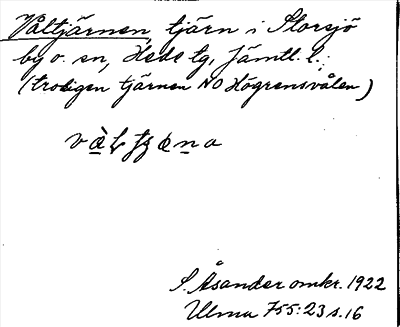 Våltjärnen, tjärn i Storsjö
by o. sn, Hede tg, Jämtl. l.;
(troligen tjärnen NO Högrensvålen)
S. Åsander omkr. 1922
Ulma 755:23 s.16